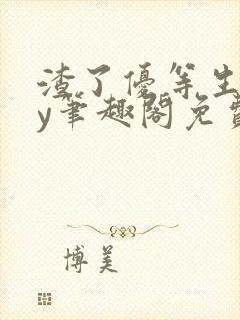 渣了優等生
y筆趣閣免費
博美